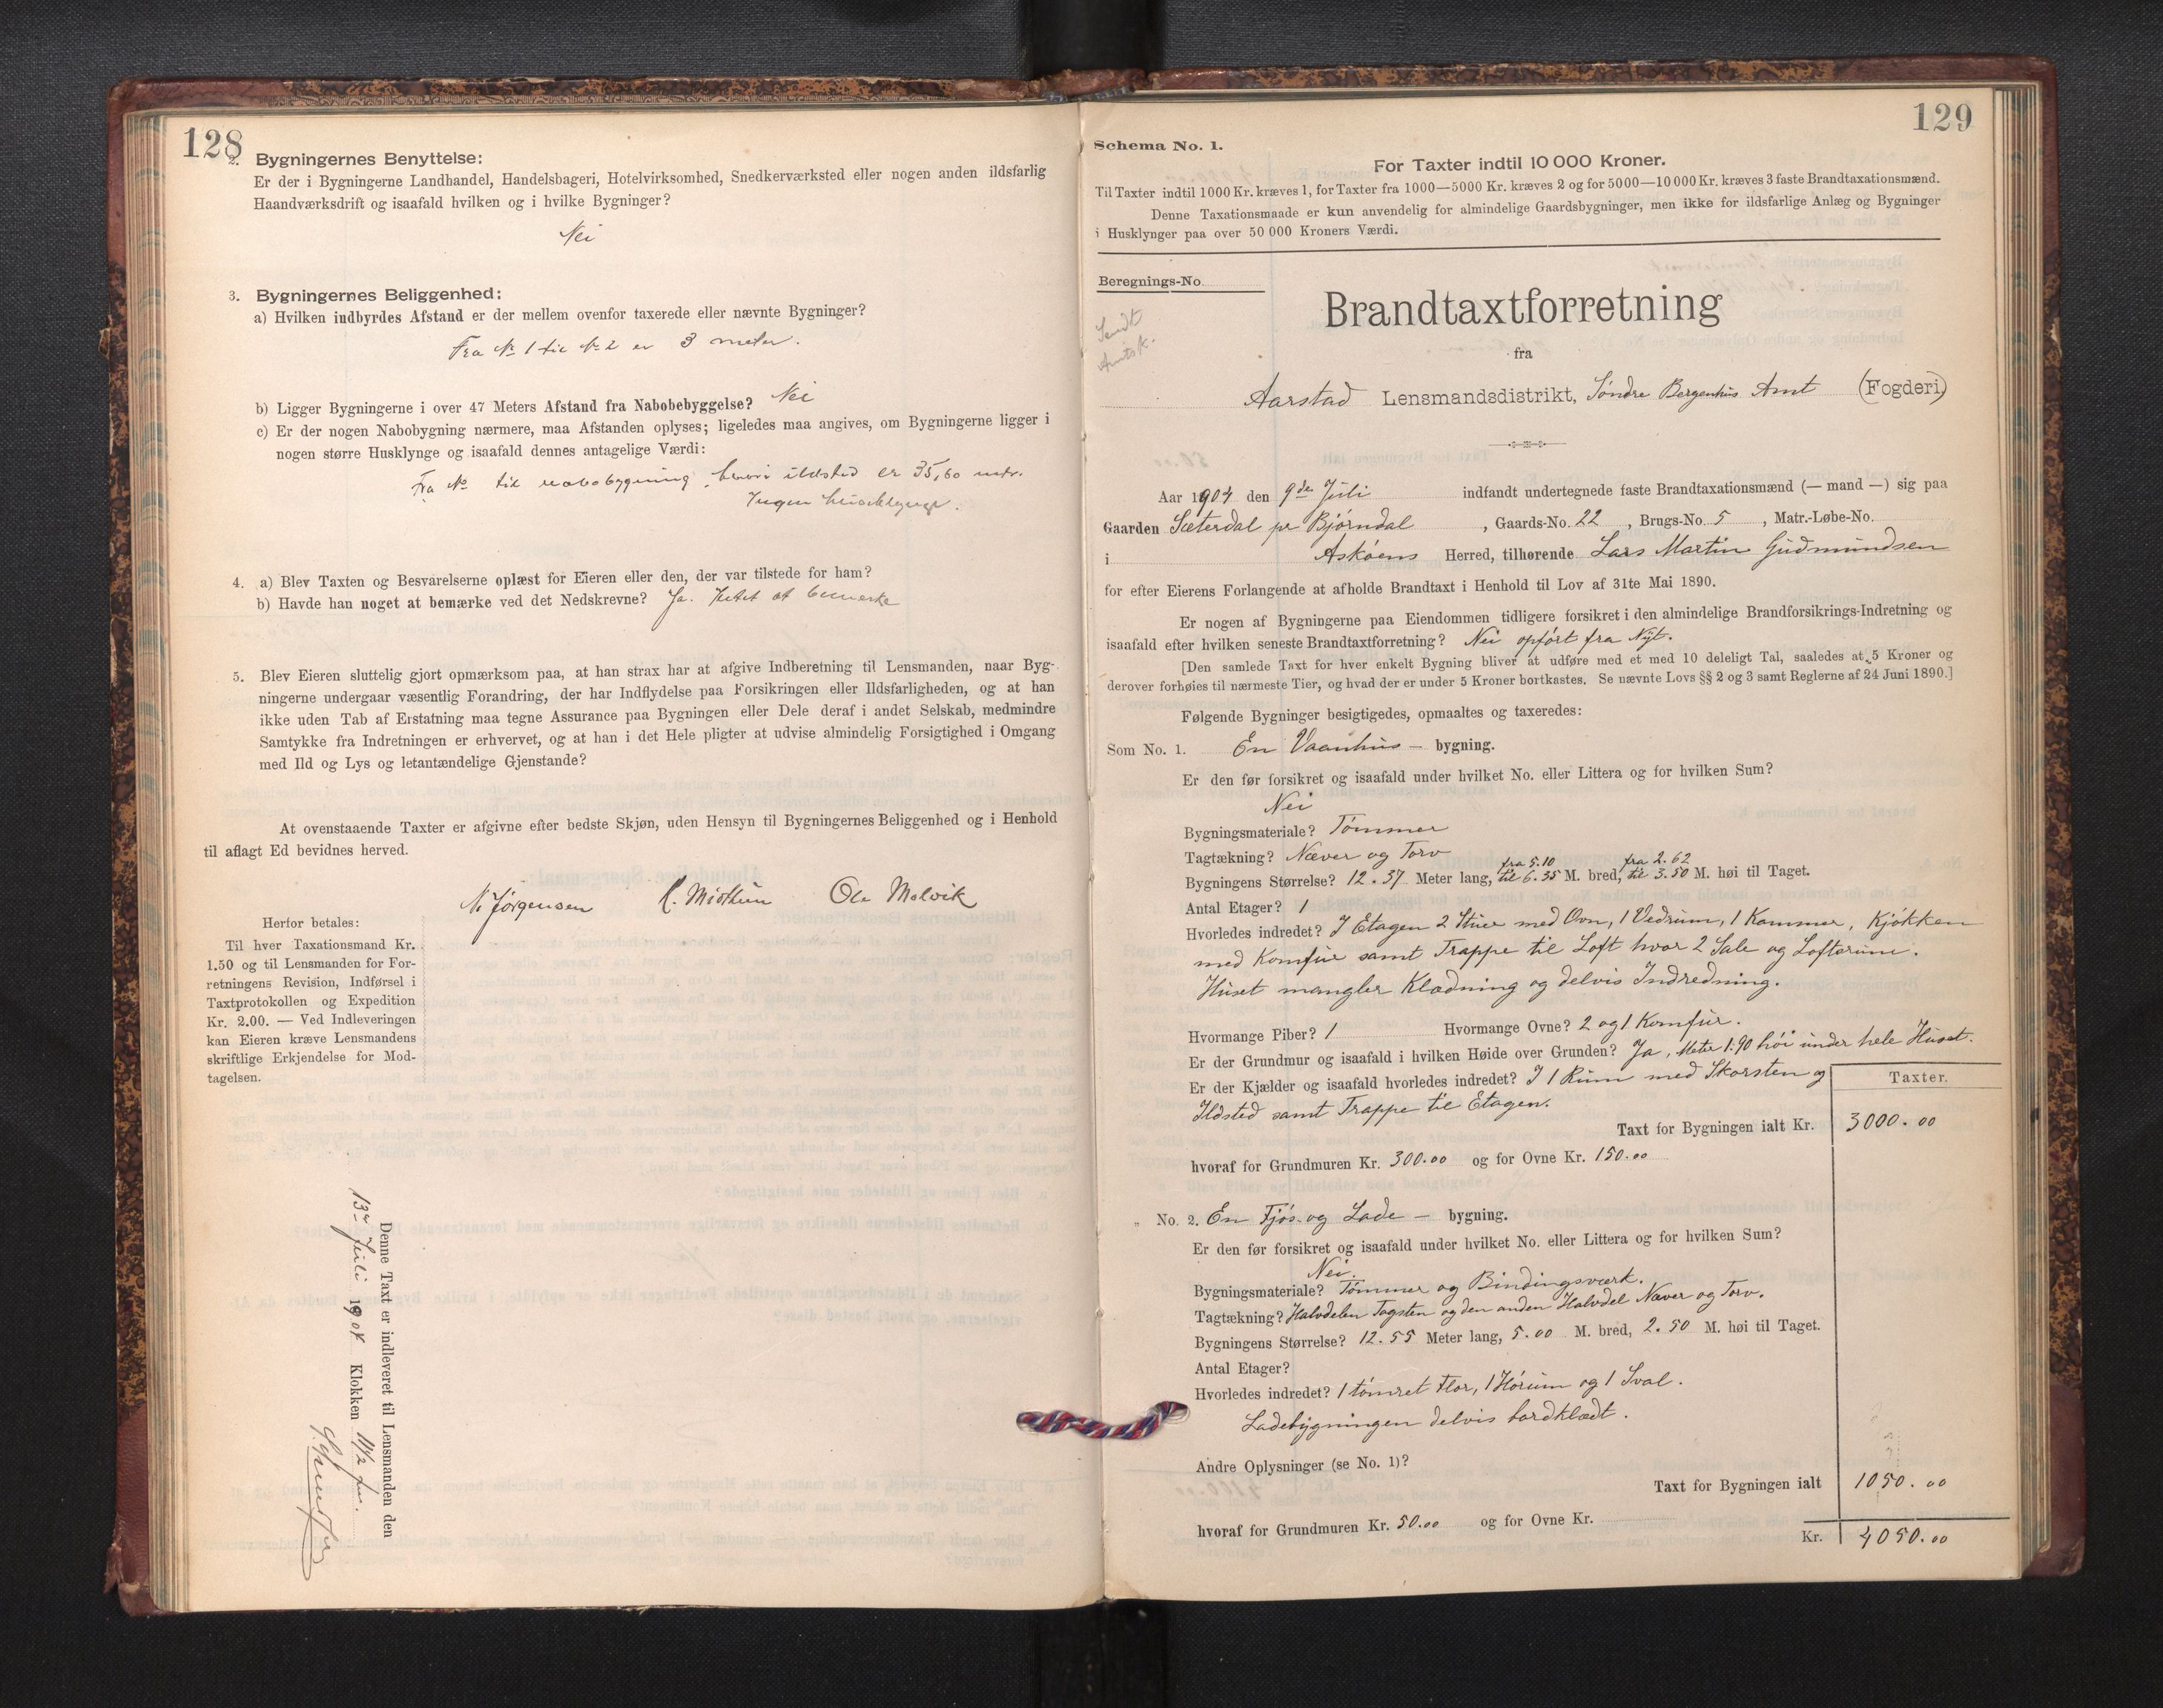 128
2. Bygningernes Benyttelse:
Er der i Bygningerne Landhandel, Handelsbageri, Hotelvirksomhed, Snedkerværksted eller nogen anden ildsfarlig
Haandværksdrift og isaafald hvilken og i hvilke Bygninger?
Nei
3. Bygningernes Beliggenhed:
a) Hvilken indbyrdes Afstand er der mellem ovenfor taxerede eller nævnte Bygninger?
Fra No 1 til No 2 er 3 meter.
b) Ligger Bygningerne i over 47 Meters Afstand fra Nabobebyggelse? Nei
c) Er der nogen Nabobygning nærmere, maa Afstanden oplyses; ligeledes maa angives, om Bygningerne ligger i
nogen større Husklynge og isaafald dennes antagelige Værdi:
Fra No til nabobygning, hvori ildsted er 35,60 mtr.
Ingen husklynge.
4. a) Blev Taxten og Besvarelserne oplæst for Eieren eller den, der var tilstede for ham?
b) Havde han noget at bemærke ved det Nedskrevne? Ja. Intet at bemerke
5. Blev Eieren sluttelig gjort opmærksom paa, at han strax har at afgive Indberetning til Lensmanden, naar Byg-
ningerne undergaar væsentlig Forandring, der har Indflydelse paa Forsikringen eller Ildsfarligheden, og at han
ikke uden Tab af Erstatning maa tegne Assurance paa Bygningen eller Dele deraf i andet Selskab, medmindre
Samtykke fra Indretningen er erhvervet, og at han i det Hele pligter at udvise almindelig Forsigtighed i Omgang
med Ild og Lys og letantændelige Gjenstande?
At ovenstaaende Taxter er afgivne efter bedste Skjøn, uden Hensyn til Bygningernes Beliggenhed og i Henhold
til aflagt Ed bevidnes herved.
N. Jørgensen Ole Melvik
Herfor betales:
Til hver Taxationsmand Kr.
1.50 og til Lensmanden for For-
retningens Revision, Indførsel i
Taxtprotokollen og Expedition
Kr. 2.00. — Ved Indleveringen
kan Eieren kræve Lensmandens
skriftlige Erkjendelse for Mod-
tagelsen.
Denne Taxt er indleveret til Lensmanden den
13de Juli 1904 Klokken 11 1/2 fm.
129
Schema No. 1.
For Taxter indtil 10 000 Kroner.
Til Taxter indtil 1000 Kr. kræves 1, for Taxter fra 1000—5000 Kr. kræves 2 og for 5000—10 000 Kr. kræves 3 faste Brandtaxationsmænd.
Denne Taxationsmaade er kun anvendelig for almindelige Gaardsbygninger, men ikke for ildsfarlige Anlæg og Bygninger
i Husklynger paa over 50 000 Kroners Værdi.
Beregnings-No.
Sendt
Amtsk.
Brandtaxtforretning
fra
Aarstad Lensmandsdistrikt, Søndre Bergenhus Amt (Fogderi)
Aar 1904 den 9de Juli indfandt undertegnede faste Brandtaxationsmænd (— mand —) sig paa
Gaarden Sæterdal pr Bjørndal, Gaards-No. 22, Brugs-No. 5, Matr.-Løbe-No.
i Askøens Herred, tilhørende Lars Martin Gudmundsen
for efter Eierens Forlangende at afholde Brandtaxt i Henhold til Lov af 31te Mai 1890.
Er nogen af Bygningerne paa Eiendommen tidligere forsikret i den almindelige Brandforsikrings-Indretning og
isaafald efter hvilken seneste Brandtaxtforretning? Nei opført fra Nyt.
[Den samlede Taxt for hver enkelt Bygning bliver at udføre med et med 10 deleligt Tal, saaledes at 5 Kroner og
derover forhøies til nærmeste Tier, og hvad der er under 5 Kroner bortkastes. Se nævnte Lovs §§ 2 og 3 samt Reglerne af 24 Juni 1890.]
Følgende Bygninger besigtigedes, opmaaltes og taxeredes:
Som No. 1. En Vaanhus — bygning.
Er den før forsikret og isaafald under hvilket No. eller Littera og for hvilken Sum?
Nei
Bygningsmateriale? Tømmer
Tagtækning? Næver og Torv
Bygningens Størrelse? 12.37 Meter lang, fra 5.10 til 6.35 M. bred, fra 2.62 til 3.50 M. høi til Taget.
Antal Etager? 1
Hvorledes indredet? I Etagen 2 Stuer med Ovn, 1 Vedrum, 1 Kammer, Kjøkken
med Komfur samt Trappe til Loft hvor 2 Sale og Loftsrum.
Huset mangler Klædning og delvis Indredning.
Hvormange Piber? 1 Hvormange Ovne? 2 og 1 Komfur.
Er der Grundmur og isaafald i hvilken Høide over Grunden? Ja, Meter 1.90 høi under hele Huset.
Er der Kjælder og isaafald hvorledes indredet? I 1 Rum med Skorsten og
Ildsted samt Trappe til Etagen.
Taxter.
Taxt for Bygningen ialt Kr. 3000.00
hvoraf for Grundmuren Kr. 300.00 og for Ovne Kr. 150.00
„ No. 2. En Fjøs og Lade — bygning.
Er den før forsikret og isaafald under hvilket No. eller Littera og for hvilken Sum?
Nei.
Bygningsmateriale? Tømmer og Bindingsværk.
Tagtækning? Halvdelen Tagsten og den anden Halvdel Næver og Torv.
Bygningens Størrelse? 12.55 Meter lang, 5.00 M. bred, 2.50 M. høi til Taget.
Antal Etager?
Hvorledes indredet? 1 tømret Flor, 1 Hørum og 1 Sval.
Ladebygningen delvis bordklædt.
Andre Oplysninger (se No. 1)?
Taxt for Bygningen ialt 1050.00
hvoraf for Grundmuren Kr. 50.00 og for Ovne Kr.
Kr. 4050.00